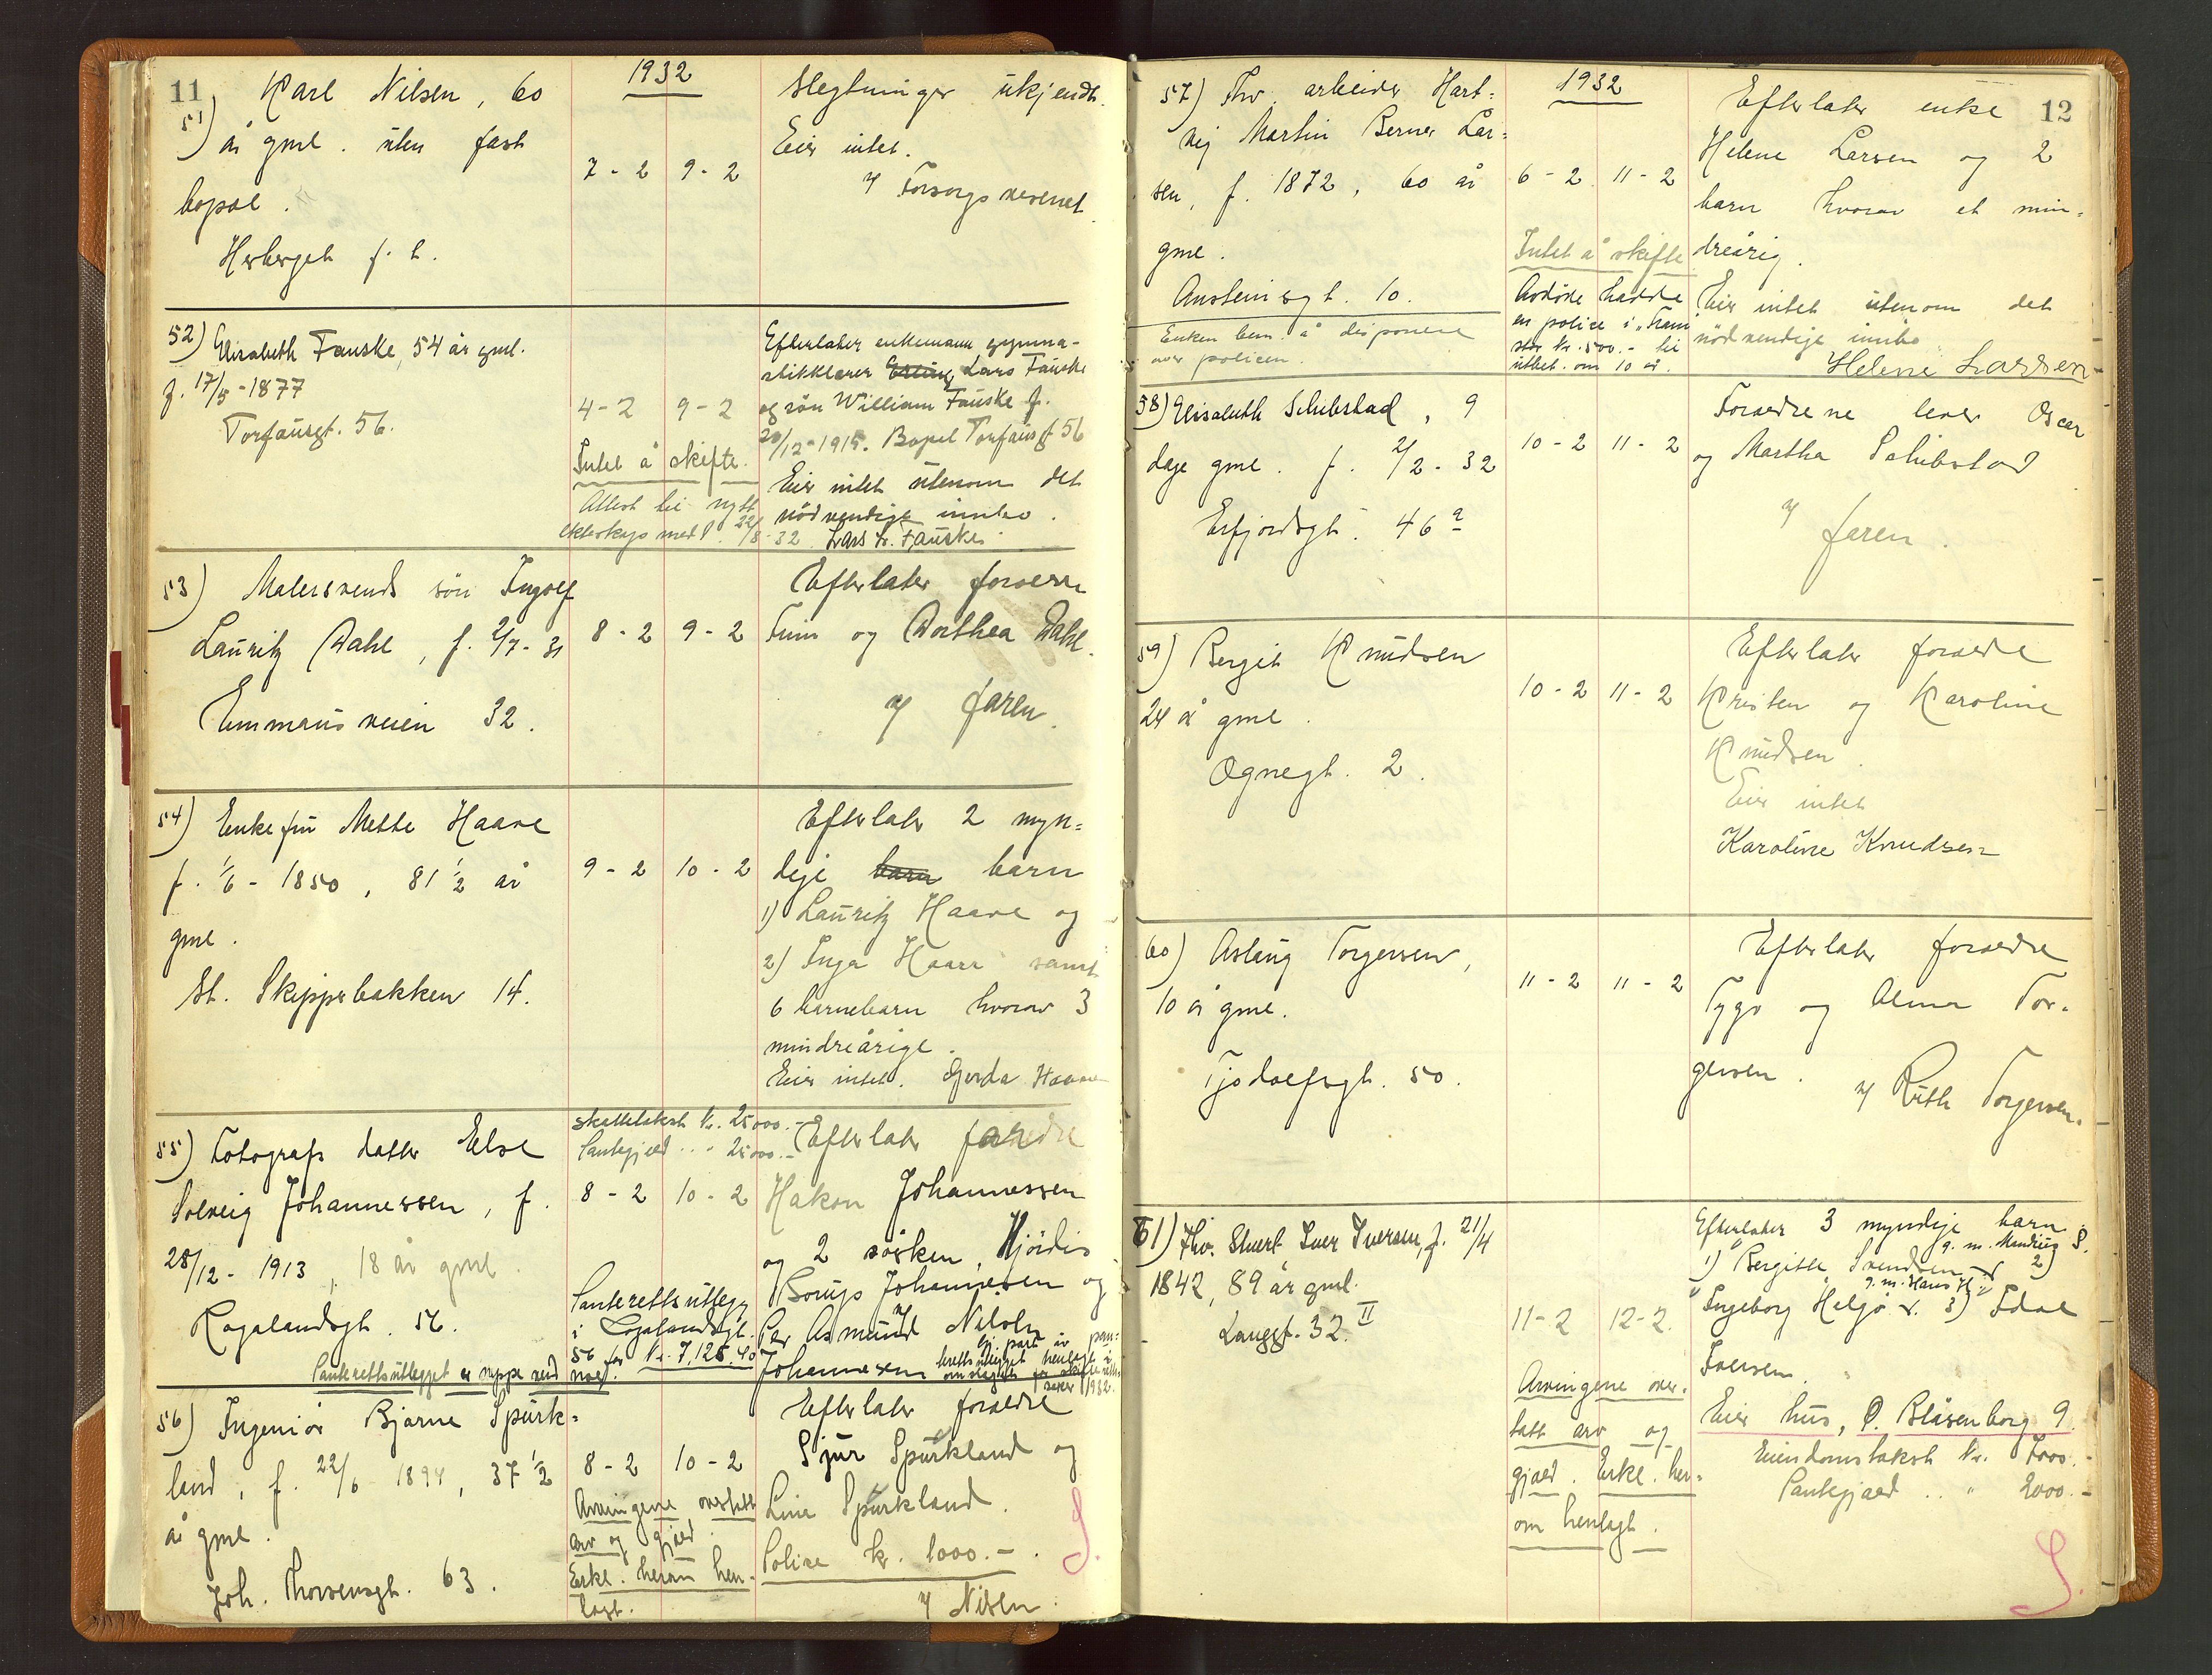 11
1932
51) Karl Nilsen, 60
år gml. uten fast
bopæl.
Herberget f. h.
7 - 2 9 - 2
Slegtninger ukjendt.
Eier intet.
Forsorgsvesenet.
52) Elisabeth Fauske, 54 år gml.
f. 17/5 - 1877
Torfæusgt. 56.
4 - 2 9 - 2
Intet å skifte.
Attest til nytt
ekteskap medd. 22/8 - 32
Efterlater enkemann gymna-
stikklærer Erling Lars Fauske
og søn William Fauske f.
20/12 - 1915. Bopel Torfæusgt 56
Eier intet utenom det
nödvendige innbo.
Lars Fauske
53) Malersvends sön Ingolf
Lauritz Dahl, f. 2/7 - 31
Emmausveien 32.
8 - 2 9 - 2
Efterlater foreldre
Finn og Dorthea Dahl.
faren.
54) Enkefru Mette Haave
f. 1/6 - 1850, 81 1/2 år
gml.
St. Skipperbakken 14.
9 - 2 10 - 2
Efterlater 2 myn=
dige barn barn
1) Lauritz Haave og
2) Inga Haave samt
6 barnebarn hvorav 3
mindreårige.
Eier intet. Gjerda Haave
55) Fotografs datter Else
Solveig Johannessen, f.
28/12 - 1913, 18 år gml.
Rogalandsgt. 56.
Panterettsutlegget er neppe verd noe.
Skattetakst kr. 25000.-
Pantegjæld " 25000.-
8 - 2 10 - 2
Panterettsutlegg
i Rogalandsgt.
56 for kr. 7,125.40
Efterlater foreldre
Håkon Johannessen
og 2 søsken, Hjördis
Borups Johannesen og
Per Asmund Nilsen
Johannesen
56) Ingeniör Bjarne Spurk=
land, f. 22/6 - 1894, 37 1/2
år gml.
Joh. Thorsensgt. 63.
8 - 2 10 - 2
Arvingene overtatt
arv og gjæld.
Erkl. herom hen-
lagt.
Efterlater foreldre
Sjur Spurkland og
Line Spurkland.
Police kr. 1000.-.
Nilsen.
12
1932
57) Fhv. arbeider Hart=
vig Martin Berner Lar=
sen, f. 1872, 60 år
gml.
Austeinsgt. 10.
Enken bem. å disponere
over policen.
6 - 2 11 - 2
Intet å skifte
Avdöde hadde
en police i "Fram"
stor kr. 500.- til
utbet. om 10 år.
Efterlater enke
Helene Larsen og 2
barn hvorav et min=
dreårig.
Eier intet utenom det
nödvendige innbo
Helene Larsen
58) Elisabeth Schibstad, 9
dage gml. f. 2/2 - 32
Erfjordsgt. 46 a
10 - 2 11 - 2
Foreldrene lever Oscar
og Martha Schibstad
faren.
59) Bergit Knudsen
24 år gml.
Ognegt. 2.
10 - 2 11 - 2
Efterlater foreldre
Kristen og Karoline
Knudsen.
Eier intet
Karoline Knudsen
60) Aslaug Torgersen,
10 år gml.
Tjodolfsgt. 50.
11 - 2 11 - 2
Efterlater foreldre
Tygo og Alma Tor-
gersen.
Ruth Torgersen.
61) Fhv. Stuert Iver Iversen, f. 21/4
1842, 89 år gml.
Langgt. 32. II
11 - 2 12 - 2.
Arvingene over-
tatt arv og
gjæld. Erkl. her-
om henlagt.
Efterlater 3 myndige barn
1) Bergitte Svendsen 2)
Ingeborg Helgö 3) Edel
Iversen.
Eier hus, Ö. Blåsenborg 9.
Eiendomstakst kr. 7000.-
Pantegjæld " 2000.-